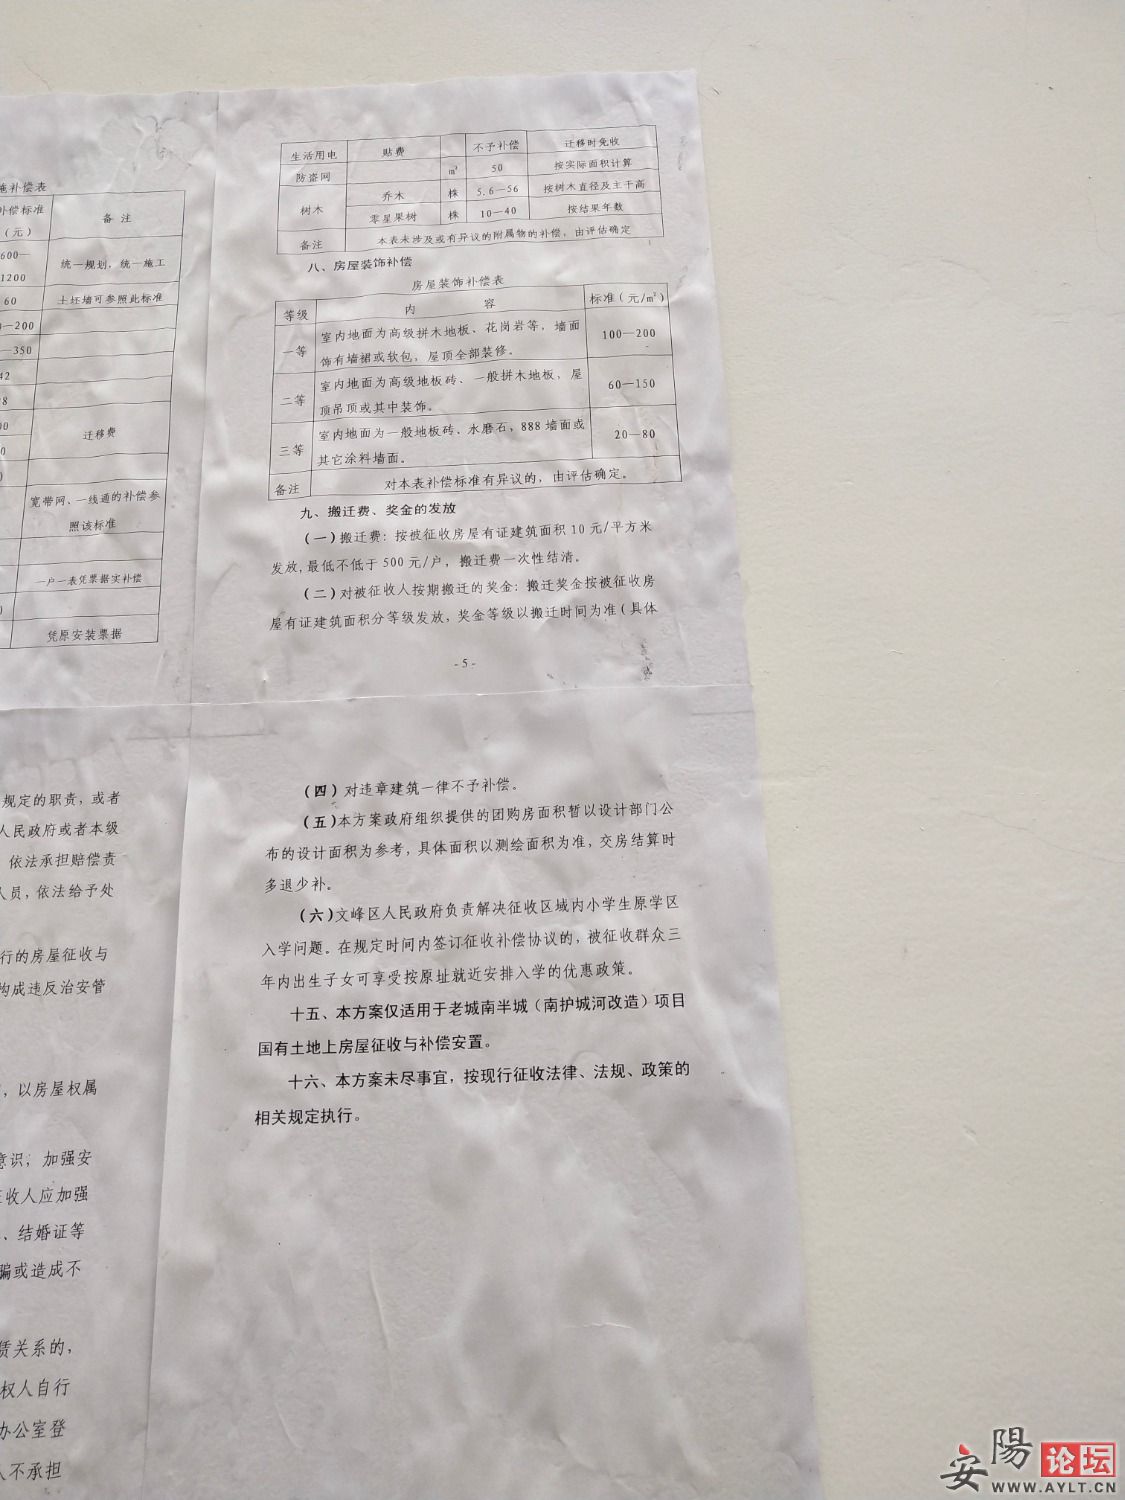 施补偿表
补偿标准
（元）
备 注
600—
1200
统一规划，统一施工
60
土坯墙可参照此标准
0—200
—350
42
迁移费
宽带网、一线通的补偿参
照该标准
一户一表凭票据实补偿
凭原安装票据
生活用电 贴费 不予补偿 迁移时免收
防盗网 m² 50 按实际面积计算
树木 乔木 株 5.6—56 按树木直径及主干高
零星果树 株 10—40 按结果年数
备注 本表未涉及或有异议的附属物的补偿，由评估确定
八、房屋装饰补偿
房屋装饰补偿表
等级 内 容 标准（元/m²）
一等 室内地面为高级拼木地板、花岗岩等，墙面
饰有墙裙或软包，屋顶全部装修。 100—200
二等 室内地面为高级地板砖、一般拼木地板，屋
顶吊顶或其中装饰。 60—150
三等 室内地面为一般地板砖、水磨石，888 墙面或
其它涂料墙面。 20—80
备注 对本表补偿标准有异议的，由评估确定。
九、搬迁费、奖金的发放
（一）搬迁费：按被征收房屋有证建筑面积 10 元/平方米
发放,最低不低于 500 元/户，搬迁费一次性结清。
（二）对被征收人按期搬迁的奖金：搬迁奖金按被征收房
屋有证建筑面积分等级发放，奖金等级以搬迁时间为准（具体
- 5 -
规定的职责，或者
人民政府或者本级
依法承担赔偿责
人员，依法给予处
行的房屋征收与
构成违反治安管
，以房屋权属
意识；加强安
征收人应加强
、结婚证等
骗或造成不
赁关系的，
权人自行
办公室登
人不承担
（四）对违章建筑一律不予补偿。
（五）本方案政府组织提供的团购房面积暂以设计部门公
布的设计面积为参考，具体面积以测绘面积为准，交房结算时
多退少补。
（六）文峰区人民政府负责解决征收区域内小学生原学区
入学问题。在规定时间内签订征收补偿协议的，被征收群众三
年内出生子女可享受按原址就近安排入学的优惠政策。
十五、本方案仅适用于老城南半城（南护城河改造）项目
国有土地上房屋征收与补偿安置。
十六、本方案未尽事宜，按现行征收法律、法规、政策的
相关规定执行。
安陽论坛
WWW.AYLT.CN